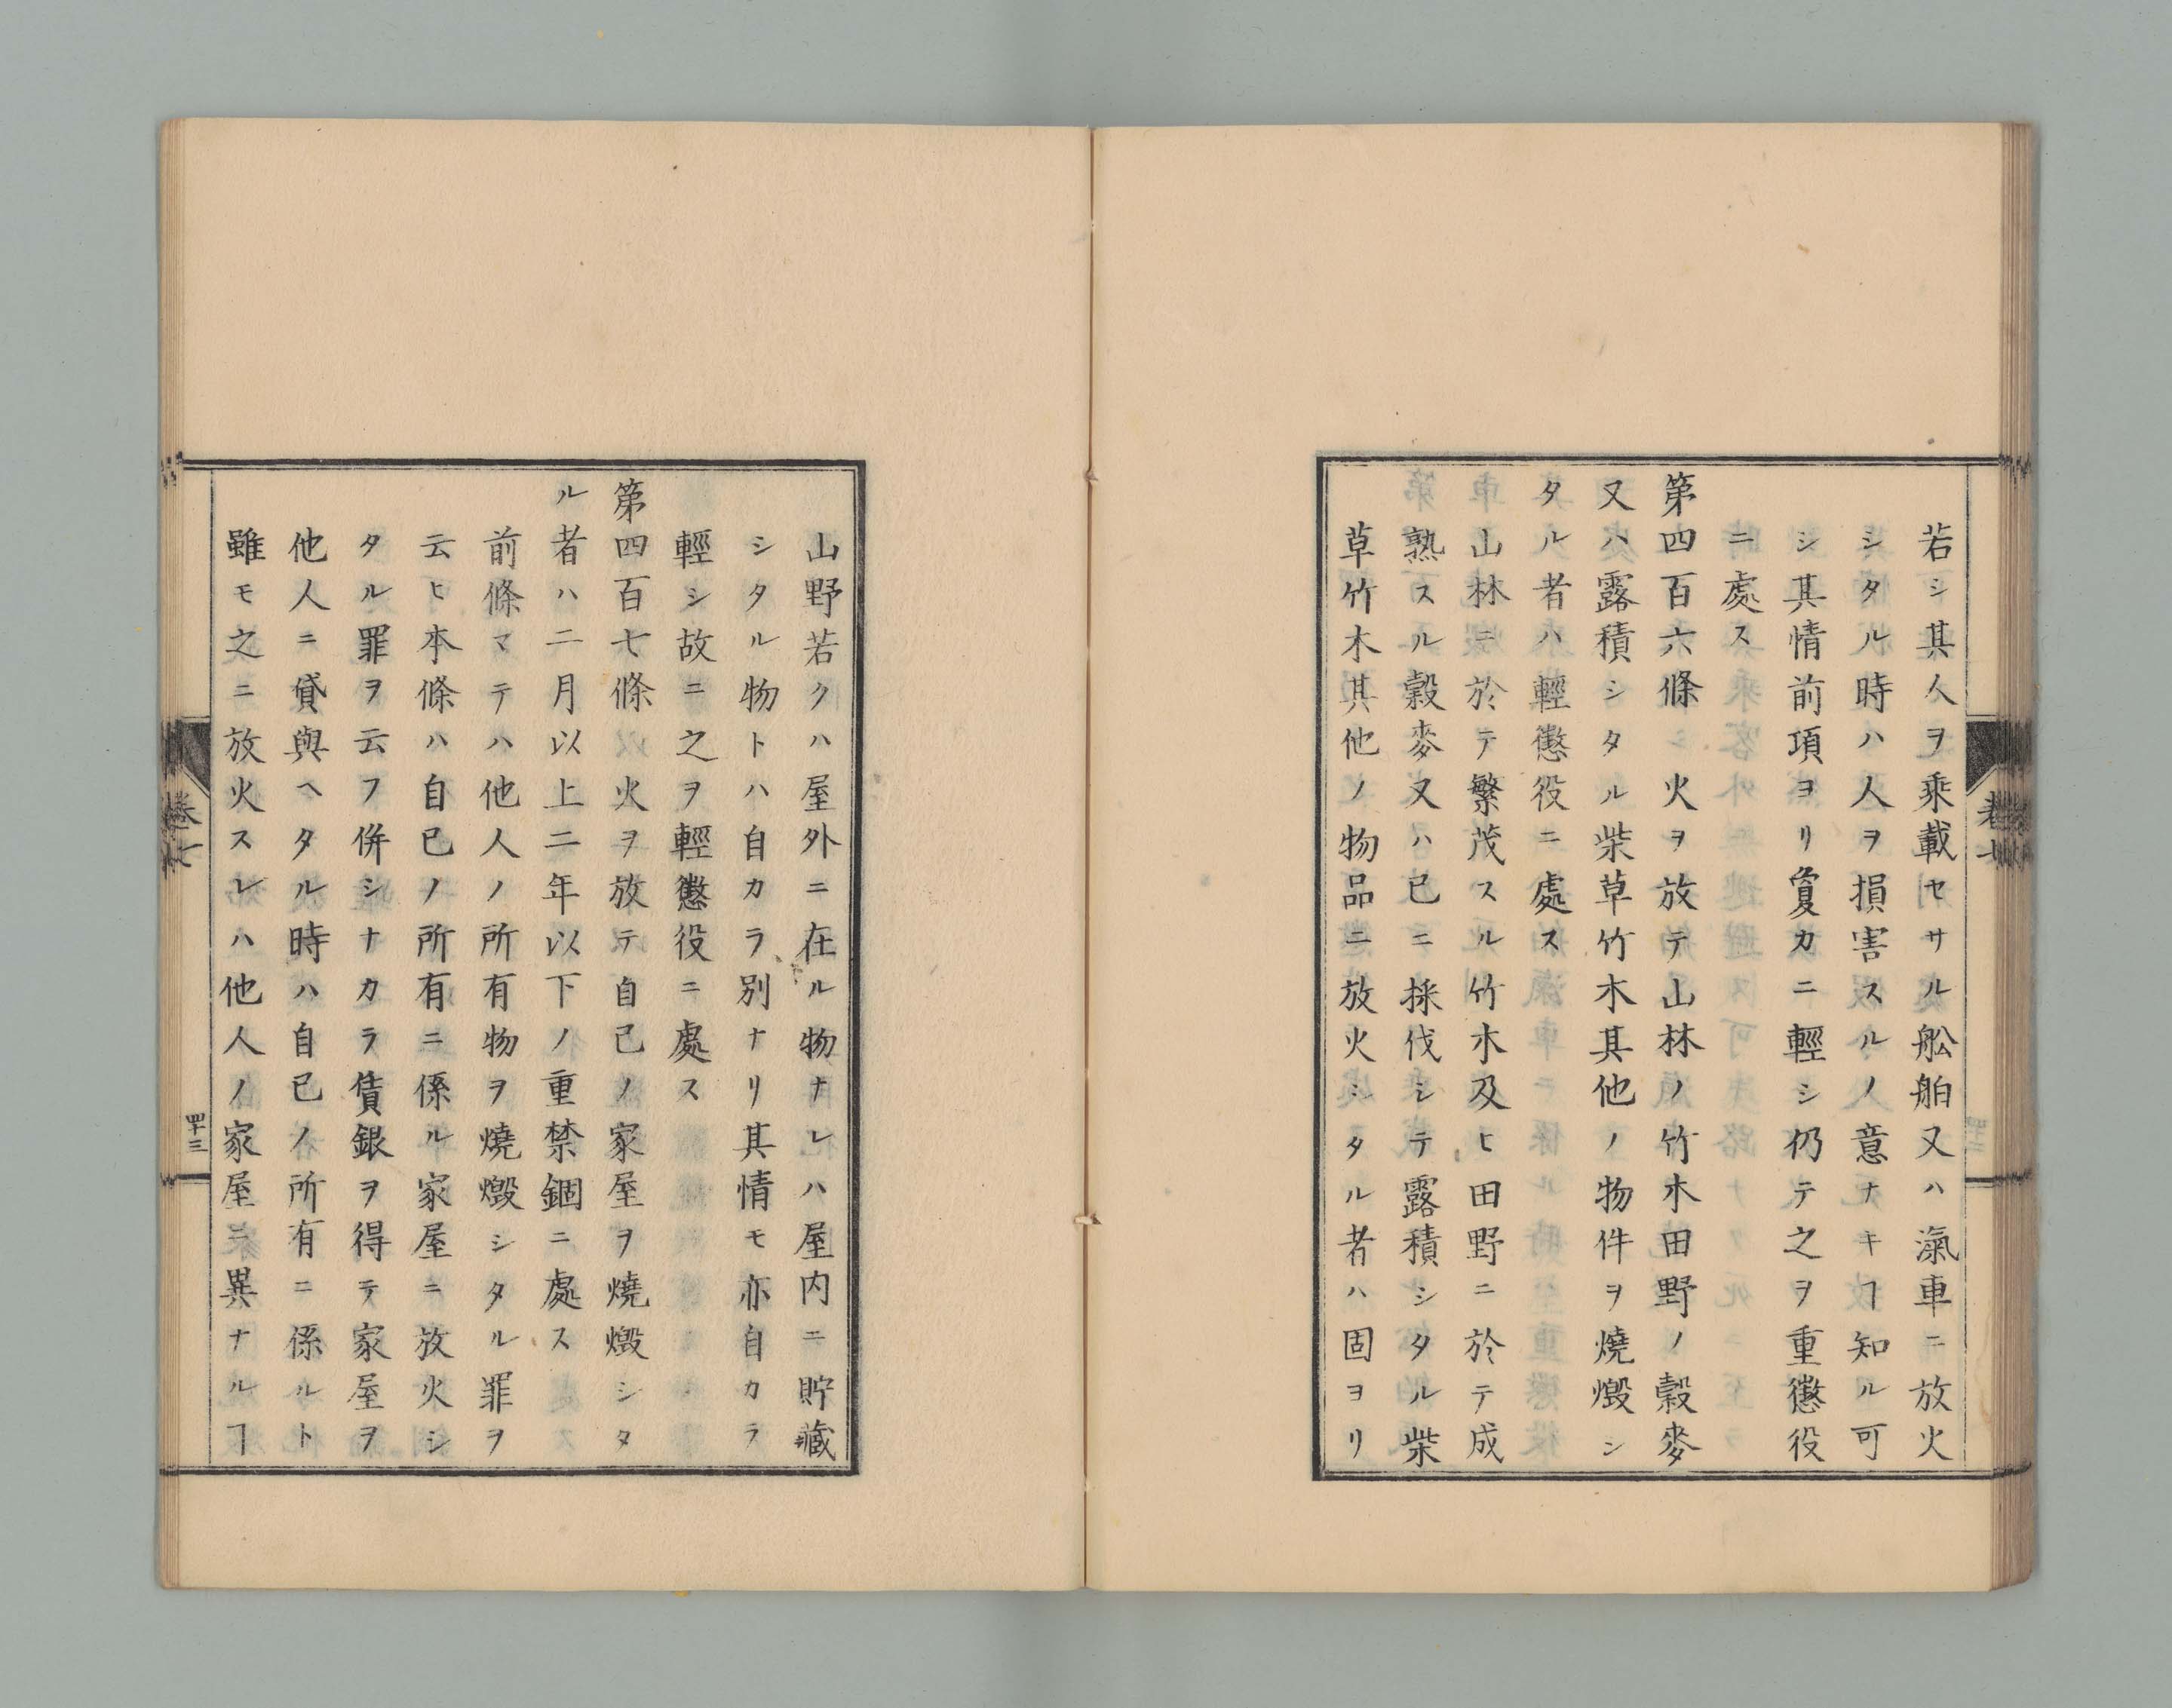 若シ其人ヲ乘載セサル舩舶又ハ滊車ニ放火
シタル時ハ人ヲ損害スルノ意ナキヿ知ル可
シ其情前項ヨリ敻カニ輕シ仍テ之ヲ重懲役
ニ處ス
第四百六條 火ヲ放テ山林ノ竹木田野ノ穀麥
又ハ露積シタル柴草竹木其他ノ物件ヲ燒燬シ
タル者ハ輕懲役ニ處ス
山林ニ於テ繁茂スル竹木及ヒ田野ニ於テ成
熟スル穀麥又ハ已ニ採伐シテ露積シタル柴
草竹木其他ノ物品ニ放火シタル者ハ固ヨリ
卷七
山野若クハ屋外ニ在ル物ナレハ屋内ニ貯藏
シタル物トハ自カラ別ナリ其情モ亦自カラ
輕シ故ニ之ヲ輕懲役ニ處ス
第四百七條 火ヲ放テ自己ノ家屋ヲ燒燬シタ
ル者ハ二月以上二年以下ノ重禁錮ニ處ス
前條マテハ他人ノ所有物ヲ燒燬シタル罪ヲ
云ヒ本條ハ自已ノ所有ニ係ル家屋ニ放火シ
タル罪ヲ云フ併シナカラ賃銀ヲ得テ家屋ヲ
他人ニ貸與ヘタル時ハ自已ノ所有ニ係ルト
雖モ之ニ放火スレハ他人ノ家屋ニ異ナルヿ
卷七
四十三